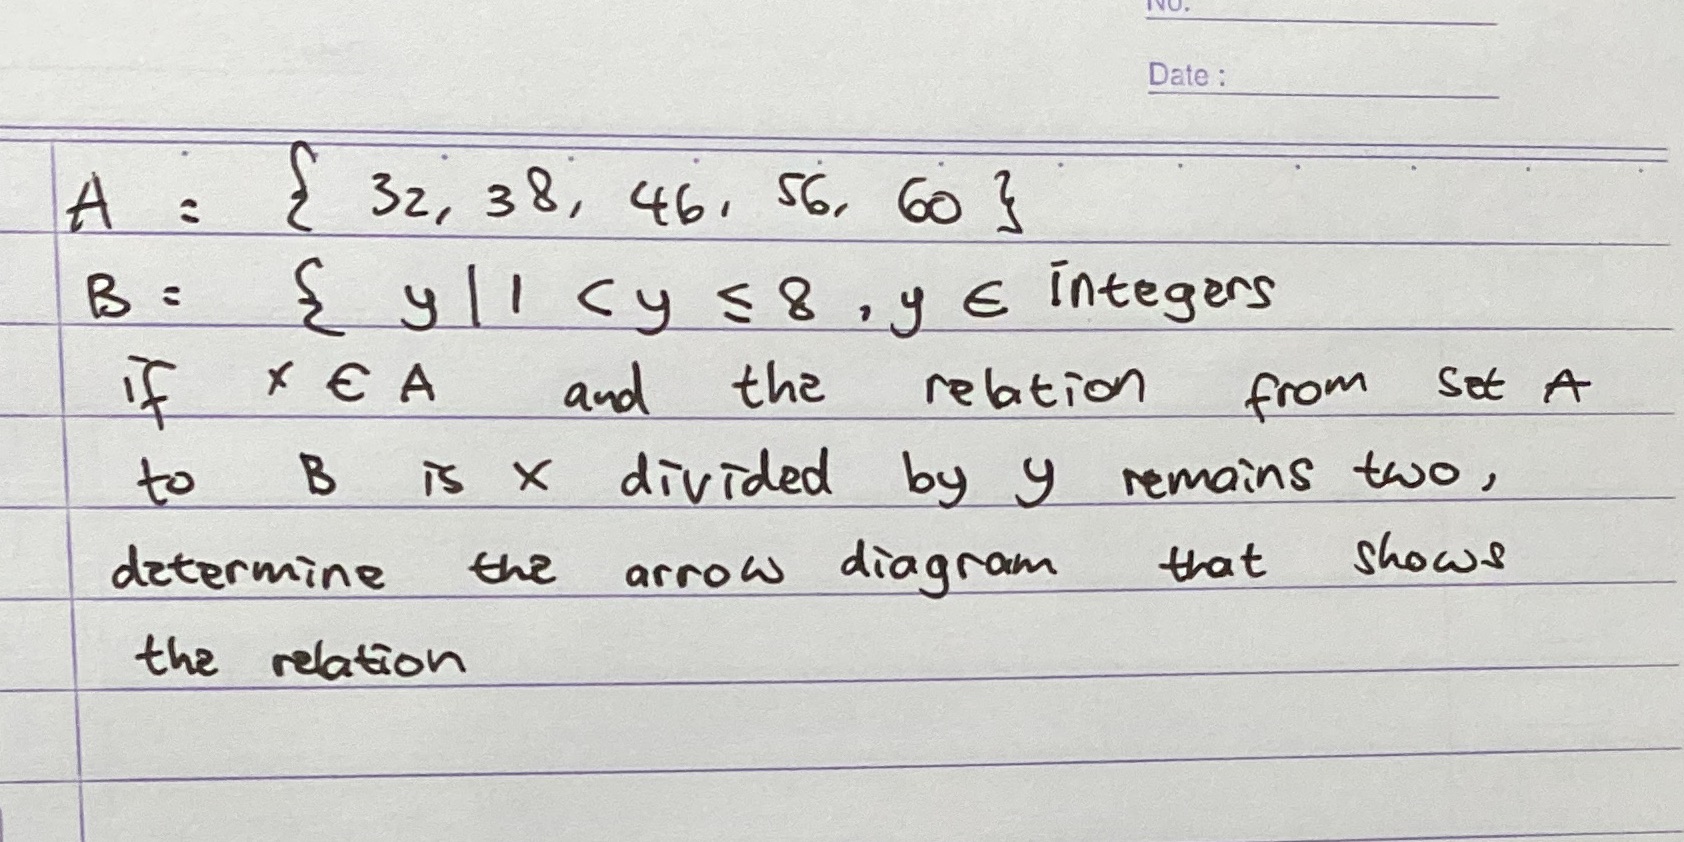 No.
Date :
A = { 32, 38, 46, 56, 60 }
B = { y | 1 < y ≤ 8 , y ∈ integers
if x ∈ A and the relation from set A
to B is x divided by y remains two,
determine the arrow diagram that shows
the relation